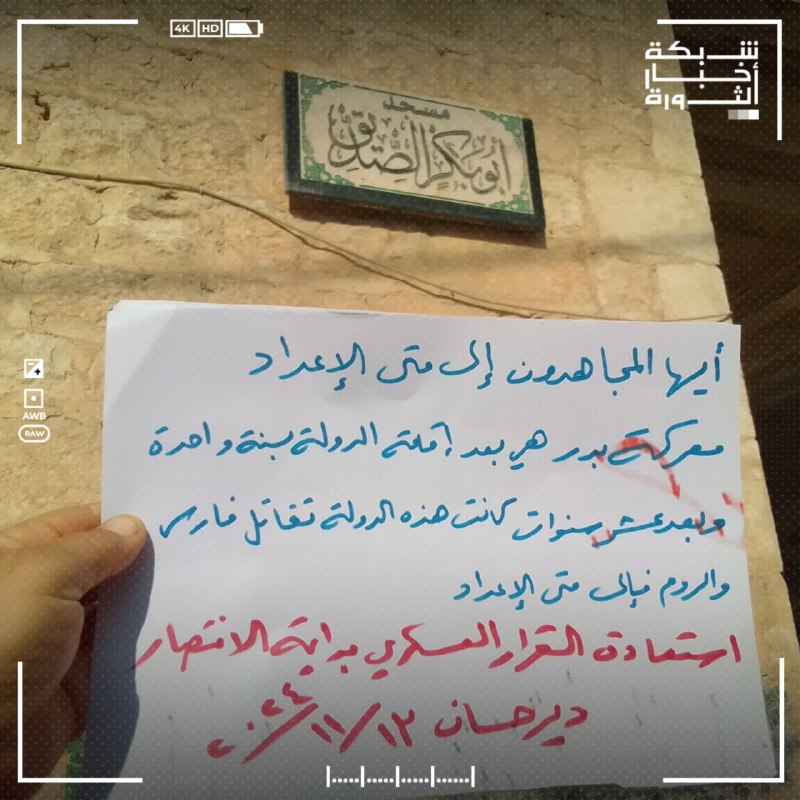 4K HD
شبكة
أخبار
الثورة
مسجد
أبو بكر الصديق
أيها المجاهدون إلى متى الإعداد
معركة بدر هي بعد إقامة الدولة بسنة واحدة
وبعد عشر سنوات كانت هذه الدولة تقاتل فارس
والروم فإلى متى الإعداد
استعادة القرار العسكري بداية الانتصار
دير حسان ١٣/١١/٢٠٢٤
AWB
RAW